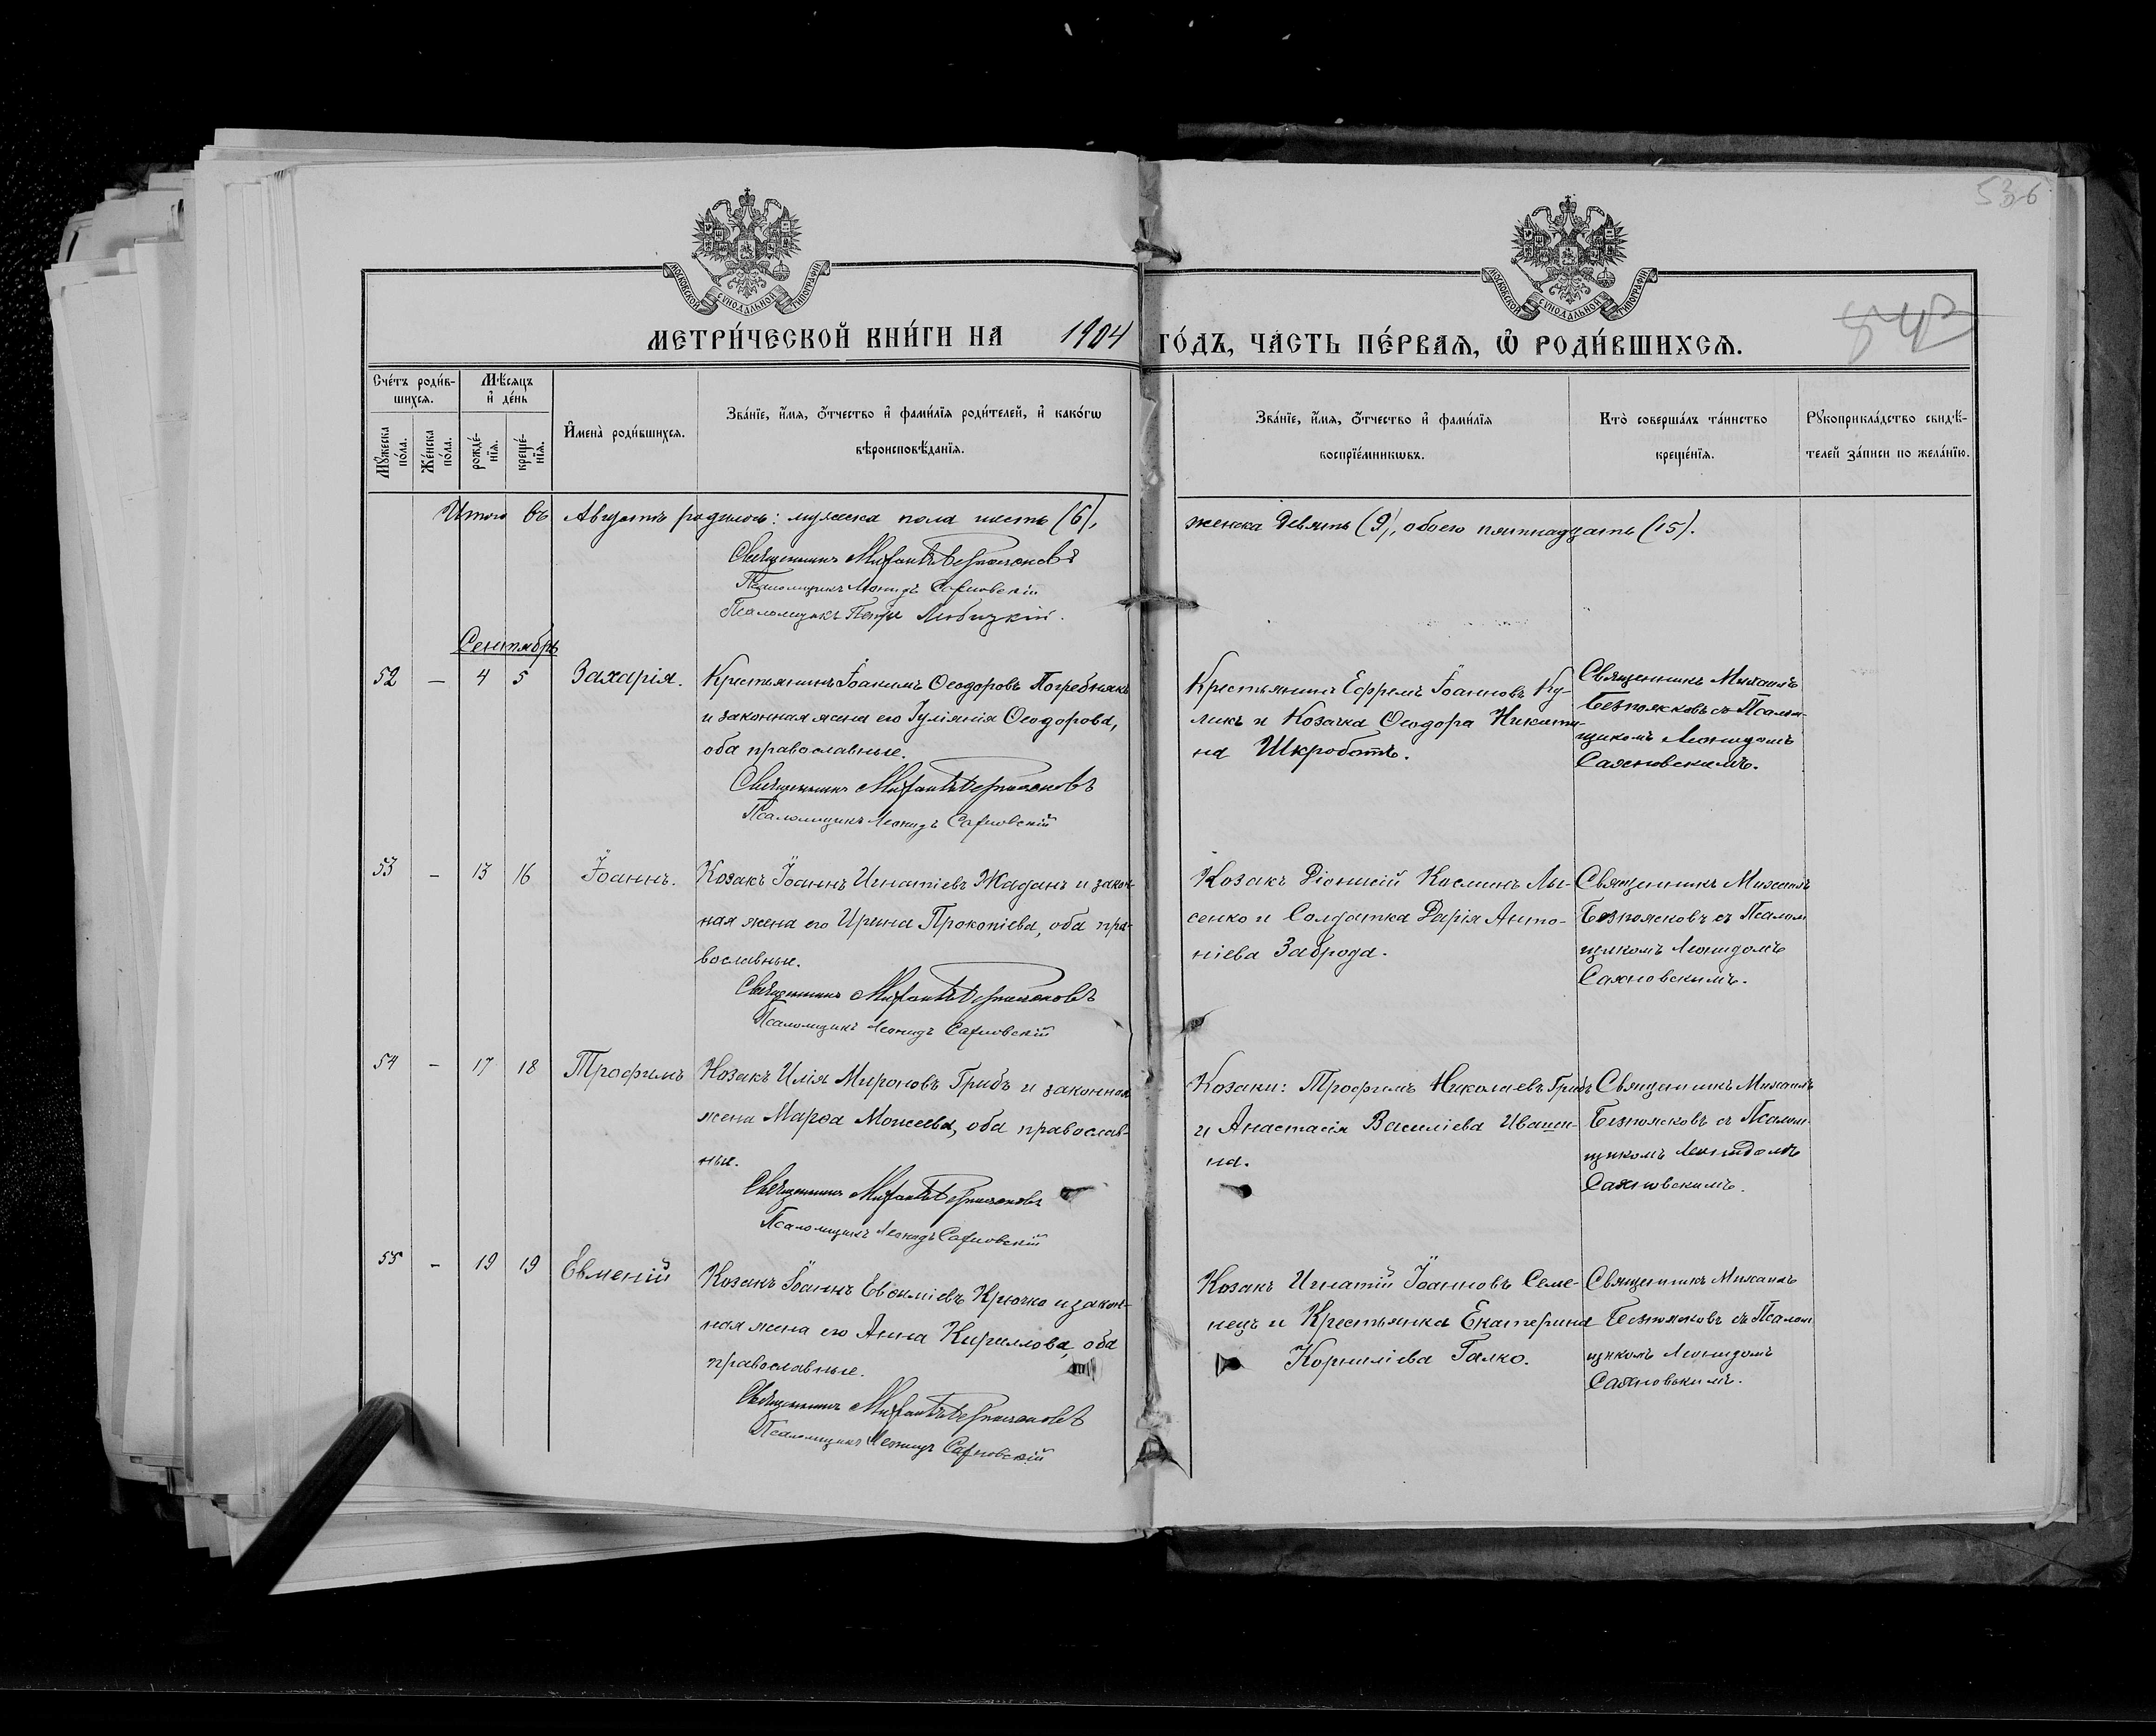 536
МОСКОВСКОЙ СѴНОДАЛЬНОЙ ТИПОГРАФІИ
МОСКОВСКОЙ СѴНОДАЛЬНОЙ ТИПОГРАФІИ
МЕТРИ́ЧЕСКОЙ КНИ́ГИ НА 1904 ГО́ДЪ, ЧА́СТЬ ПЕ́РВАѦ, Ѡ҆ РОДИ́ВШИХСѦ.
Сче́тъ роди́в-
шихсѧ.
Мꙋ́жеска по́ла.
Же́нска по́ла.
Мѣ́сѧцъ и҆ де́нь
рожде́-нїѧ.
креще́-нїѧ.
И҆мена̀ роди́вшихсѧ.
Зва́нїе, и҆́мѧ, ѻ҆́тчество и҆ фами́лїѧ роди́телей, и҆ како́гѡ
вѣроисповѣ́данїѧ.
Зва́нїе, и҆́мѧ, ѻ҆́тчество и҆ фами́лїѧ
воспрїе́мникѡвъ.
Кто̀ соверша́лъ та́инство
креще́нїѧ.
Рꙋкоприкла́дство свидѣ́-
телей за́писи по жела́нїю.
Итого въ Августѣ родилось: мужеска пола шесть (6), женска девять (9), обоего пятнадцать (15).
Священникъ Михаилъ Безпоясковъ
Псаломщикъ Леонидъ Сахновскій
Псаломщикъ Петръ Любицкій.
Сентябрь
52 — 4 5 Захарія.
Крестьянинъ Іоакимъ Ѳеодоровъ Погребнякъ
и законная жена его Іуліянія Ѳеодорова,
оба православные.
Священникъ Михаилъ Безпоясковъ
Псаломщикъ Леонидъ Сахновскій
Крестьянинъ Ефремъ Іоанновъ Ку-
ликъ и Козачка Ѳеодора Никити-
на Шкроботъ.
Священникъ Михаилъ
Безпоясковъ съ Псалом-
щикомъ Леонидомъ
Сахновскимъ.
53 — 13 16 Іоаннъ.
Козакъ Іоаннъ Игнатіевъ Жаданъ и закон-
ная жена его Ирина Прокопіева, оба пра-
вославные.
Священникъ Михаилъ Безпоясковъ
Псаломщикъ Леонидъ Сахновскій
Козакъ Діонисій Косминъ Лы-
сенко и Солдатка Дарія Анто-
ніева Заброда.
Священникъ Михаилъ
Безпоясковъ съ Псалом
щикомъ Леонидомъ
Сахновскимъ.
54 — 17 18 Трофимъ
Козакъ Илія Мироновъ Грибъ и законная
жена Марѳа Моисеева, оба православ-
ные.
Священникъ Михаилъ Безпоясковъ
Псаломщикъ Леонидъ Сахновскій
Козаки: Трофимъ Николаевъ Грибъ
и Анастасія Василіева Иваши-
на.
Священникъ Михаилъ
Безпоясковъ съ Псалом-
щикомъ Леонидомъ
Сахновскимъ.
55 — 19 19 Евменій
Козакъ Іоаннъ Евѳиміевъ Крючко и закон-
ная жена его Анна Кириллова, оба
православные.
Священникъ Михаилъ Безпоясковъ
Псаломщикъ Леонидъ Сахновскій
Козакъ Игнатій Іоанновъ Семе-
нецъ и Крестьянка Екатерина
Корниліева Галко.
Священникъ Михаилъ
Безпоясковъ съ Псалом
щикомъ Леонидомъ
Сахновскимъ.